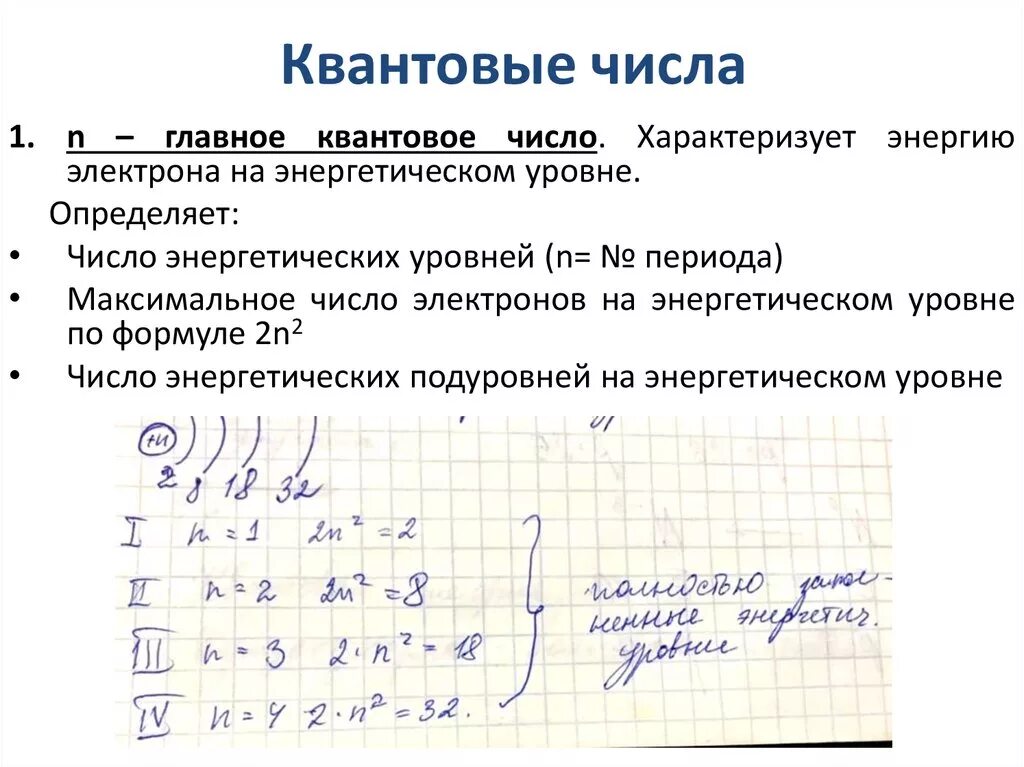 Квантовые числа
1. n – главное квантовое число. Характеризует энергию
электрона на энергетическом уровне.
Определяет:
• Число энергетических уровней (n= № периода)
• Максимальное число электронов на энергетическом уровне
по формуле 2n²
• Число энергетических подуровней на энергетическом уровне
2 8 18 32
I n = 1 2n² = 2
II n = 2 2n² = 8
III n = 3 2·n² = 18
IV n = 4 2·n² = 32.
полностью запол-
ненные энергетич.
уровни